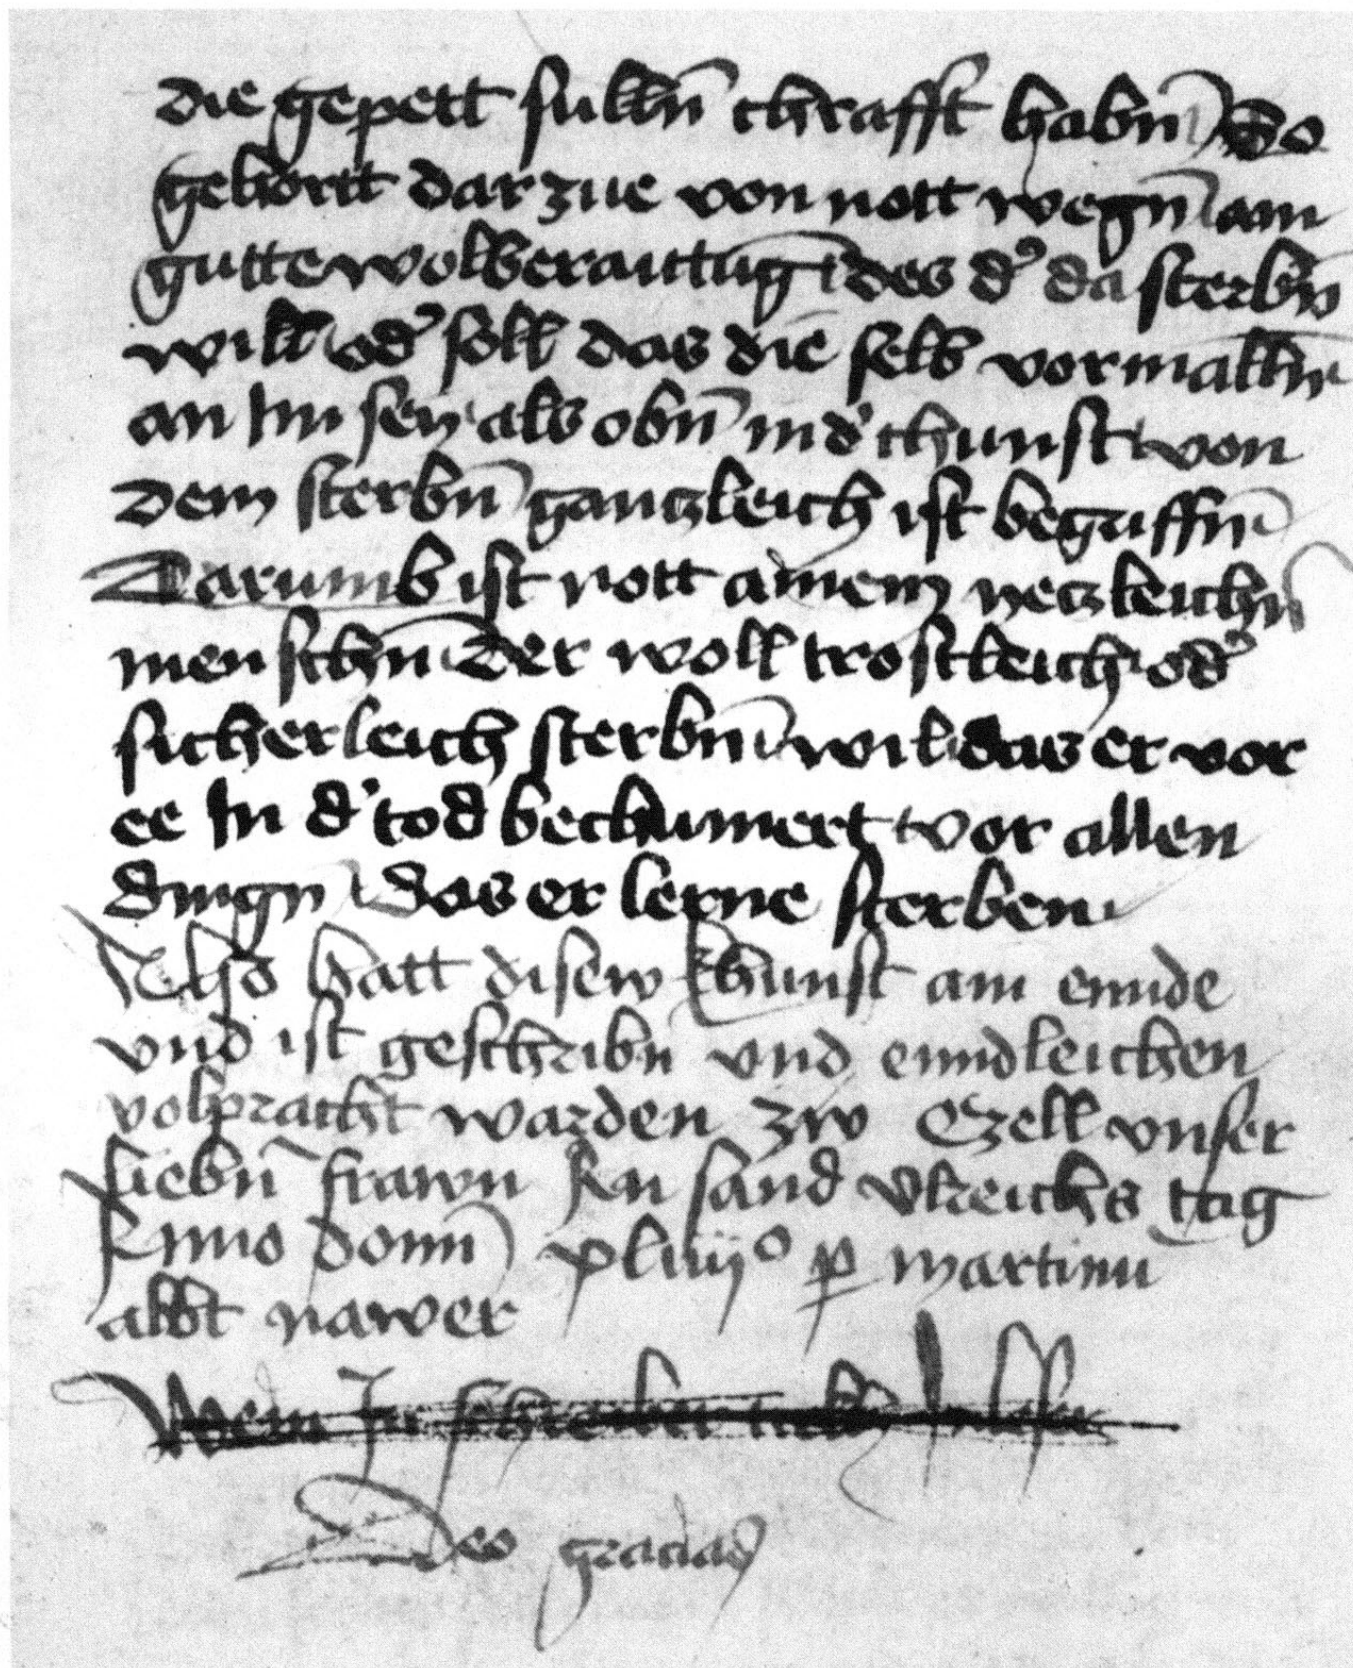 die gepett sullñ chrafft habñ So
gehortt dar zue von nott wegñ ain
gutte wolberaittũg des d' da sterbñ
will od' soll das die selb vormallñ
an Im sey als obñ in d' chunst von
dem sterbñ gantzleich ist begriffñ
Darumb ist nott ainem yetzleichñ
menschñ Der woll trostleich od'
sicherleich sterbñ wil das er vor
ee In d' tod bechumert vor allen
dingñ das er lerne sterben
Also hatt disew khunst ain ennde
vnd ist geschribñ vnd enndleichen
volpracht warden zw Czell vnser
liebñ frawn An sand Vlreichs tag
Anno domī xliiijº ꝑ martinū
abbt nawer
Deo gracias